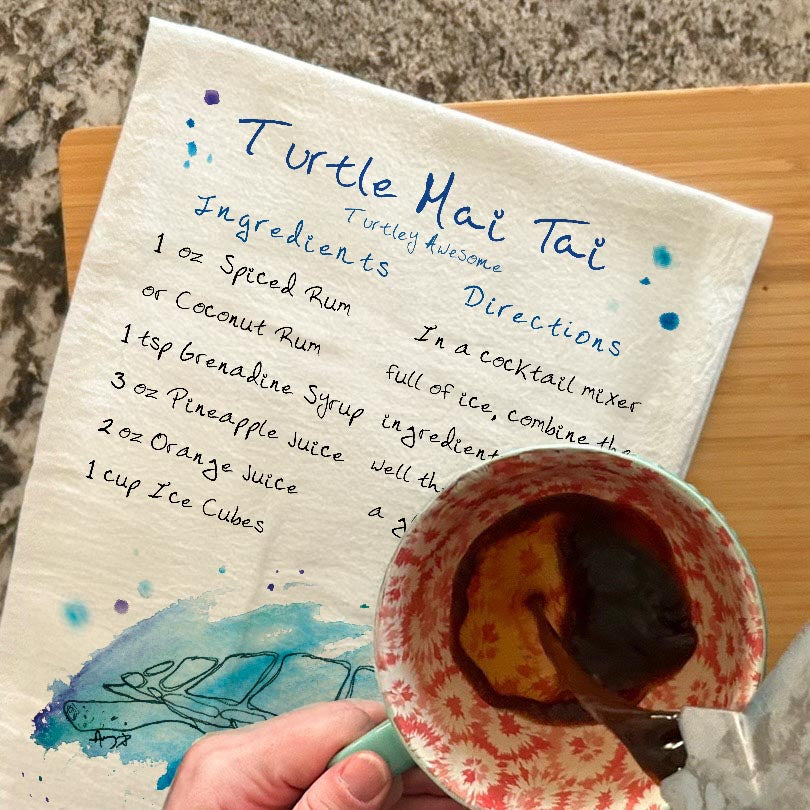 Turtle Mai Tai
Turtley Awesome
Ingredients
1 oz Spiced Rum
or Coconut Rum
1 tsp Grenadine Syrup
3 oz Pineapple Juice
2 oz Orange Juice
1 cup Ice Cubes
Directions
In a cocktail mixer
full of ice, combine the
ingredient
well th
a g